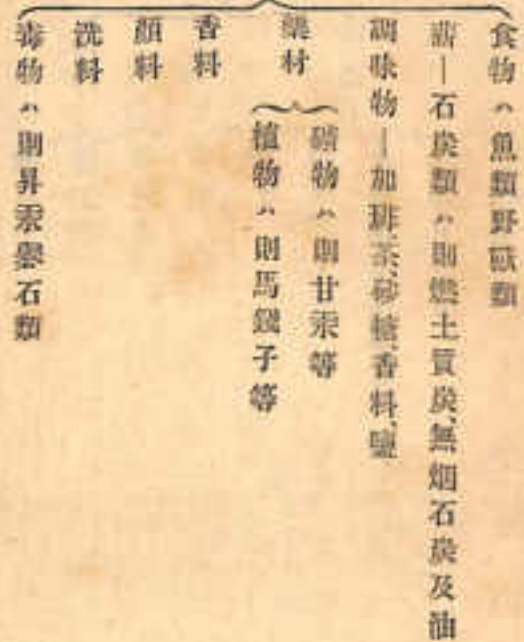 食物ハ魚類野獸類
薪—石炭類ハ則燃土質炭、無烟石炭及油
調味物—加琲、茶、砂糖、香料、鹽
藥材
礦物ハ則甘汞等
植物ハ則馬錢子等
香料
顏料
洗料
毒物ハ則昇汞礜石類